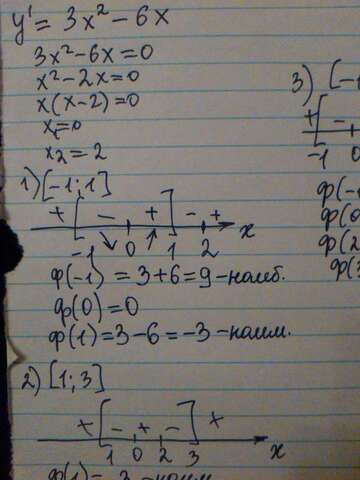 y' = 3x² - 6x
3x² - 6x = 0
x² - 2x = 0
x(x-2) = 0
x₁ = 0
x₂ = 2
1) [-1; 1]
+ [ - + ] - +
-1 0 1 2 x
ф(-1) = 3+6=9 - наиб.
ф(0) = 0
ф(1) = 3-6 = -3 - наим.
2) [1; 3]
+ [ - + - ] +
1 0 2 3 x
3) [-
+ [ -
-1 0
ф(-
ф(0
ф(2